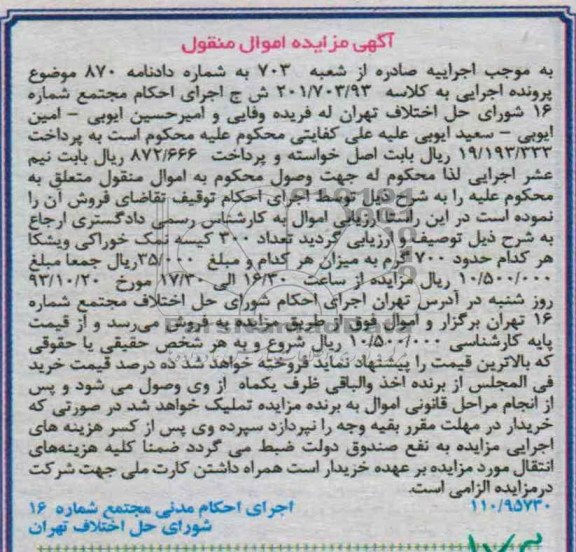 آگهی مزایده اموال منقول
به موجب اجراییه صادره از شعبه ۷۰۳ به شماره دادنامه ۸۷۰ موضوع
پرونده اجرایی به کلاسه ۲۰۱/۷۰۳/۹۳ ش ج اجرای احکام مجتمع شماره
۱۶ شورای حل اختلاف تهران له فریده وفایی و امیرحسین ایوبی - امین
ایوبی - سعید ایوبی علیه علی کفایتی محکوم علیه محکوم است به پرداخت
۱۹/۱۹۳/۳۳۳ ریال بابت اصل خواسته و پرداخت ۸۷۲/۶۶۶ ریال بابت نیم
عشر اجرایی لذا محکوم له جهت وصول محکوم به اموال منقول متعلق به
محکوم علیه را به شرح ذیل توسط اجرای احکام توقیف تقاضای فروش آن را
نموده است در این راستا ارزیابی اموال به کارشناس رسمی دادگستری ارجاع
به شرح ذیل توصیف و ارزیابی گردید تعداد ۳۰۰ کیسه نمک خوراکی ویشکا
هر کدام حدود ۷۰۰ گرم به میزان هر کدام و مبلغ ۳۵/۰۰۰ ریال جمعا مبلغ
۱۰/۵۰۰/۰۰۰ ریال مزایده از ساعت ۱۶/۳۰ الی ۱۷/۳۰ مورخ ۹۳/۱۰/۲۰
روز شنبه در آدرس تهران اجرای احکام شورای حل اختلاف مجتمع شماره
۱۶ تهران برگزار و اموال فوق از طریق مزایده به فروش می‌رسد و از قیمت
پایه کارشناسی ۱۰/۵۰۰/۰۰۰ ریال شروع و به هر شخص حقیقی یا حقوقی
که بالاترین قیمت را پیشنهاد نماید فروخته خواهد شد ده درصد قیمت خرید
فی المجلس از برنده اخذ والباقی ظرف یکماه از وی وصول می شود و پس
از انجام مراحل قانونی اموال به برنده مزایده تملیک خواهد شد در صورتی که
خریدار در مهلت مقرر بقیه وجه را نپردازد سپرده وی پس از کسر هزینه های
اجرایی مزایده به نفع صندوق دولت ضبط می گردد ضمنا کلیه هزینه‌های
انتقال مورد مزایده بر عهده خریدار است همراه داشتن کارت ملی جهت شرکت
درمزایده الزامی است.
۱۱۰/۹۵۷۳۰ اجرای احکام مدنی مجتمع شماره ۱۶
شورای حل اختلاف تهران